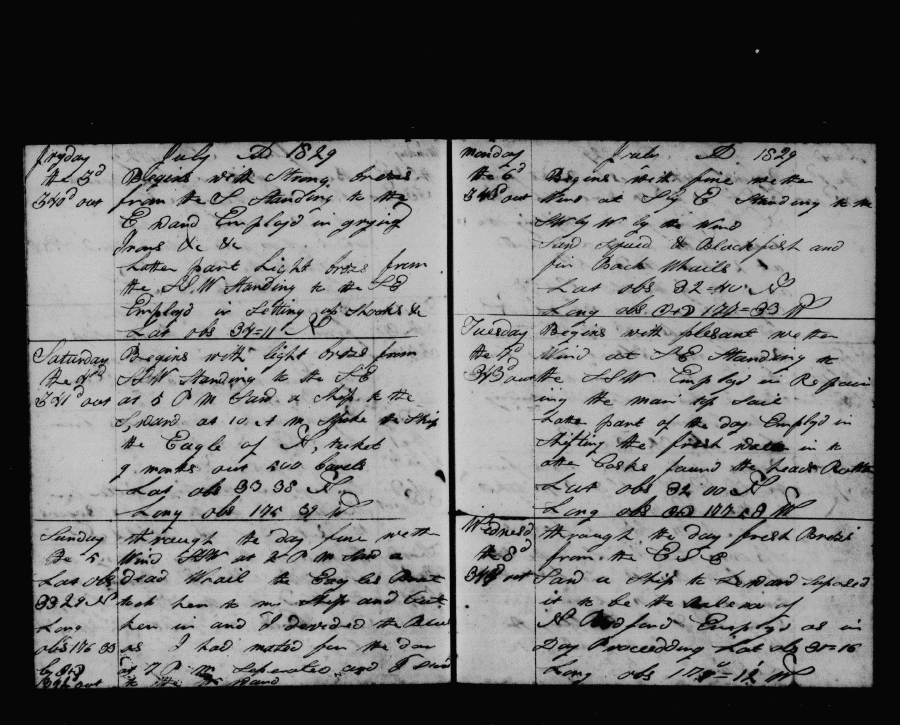 July AD 1829
fryday
the 3d
340d out
Begins with Strong brezes
from the S Standing to the
E ward Employd in
Irons &c &c
Latter part Light brezes from
the SSW Standing to the SE
Employd in Setting up Shooks &c
Lat obs 34=11 N
Saturday
the 4d
341d out
Begins with light brezes from
SSW Standing to the SE
at 5 PM Saw a Ship to the
S ward at 10 A m Spoke the Ship
the Eagle of N tucket
9 months out 500 barels
Lat obs 33 38 N
Long obs 175 39 W
Sunday
the 5
Lat obs
33 29 N
Long
obs 176 33
out
through the day fine wether
Wind SW at 2 P m Saw a
dead Whail the Eagles Boat
took her to the Ship and Cut
her in and I devided the
as I had mated for the day
at 7 P m Seperated and I
to the ward
July AD 1829
monday
the 6d
out
Begins with fine wether
Wind at S by E Standing to the
SW by W by the Wind
Saw Squid & Blackfish and
fin Back Whails
Lat obs 32=40 N
Long obs 177=33 W
Tuesday
the 7d
343d out
Begins with plesant wether
Wind at SE Standing to
the SSW Employd in Repair
ing the main top Sail
Latter part of the day Employd in
Shifting the fresh water in to
other Casks found the heads Rotten
Lat obs 32 00 N
Long obs W
Wednesd
the 8d
out
through the day fresh Brezes
from the ESE
Saw a Ship to Leward Suposed
it to be the of
N Bedford Employd as in
Day Proceedding Lat obs 31=16
Long obs W